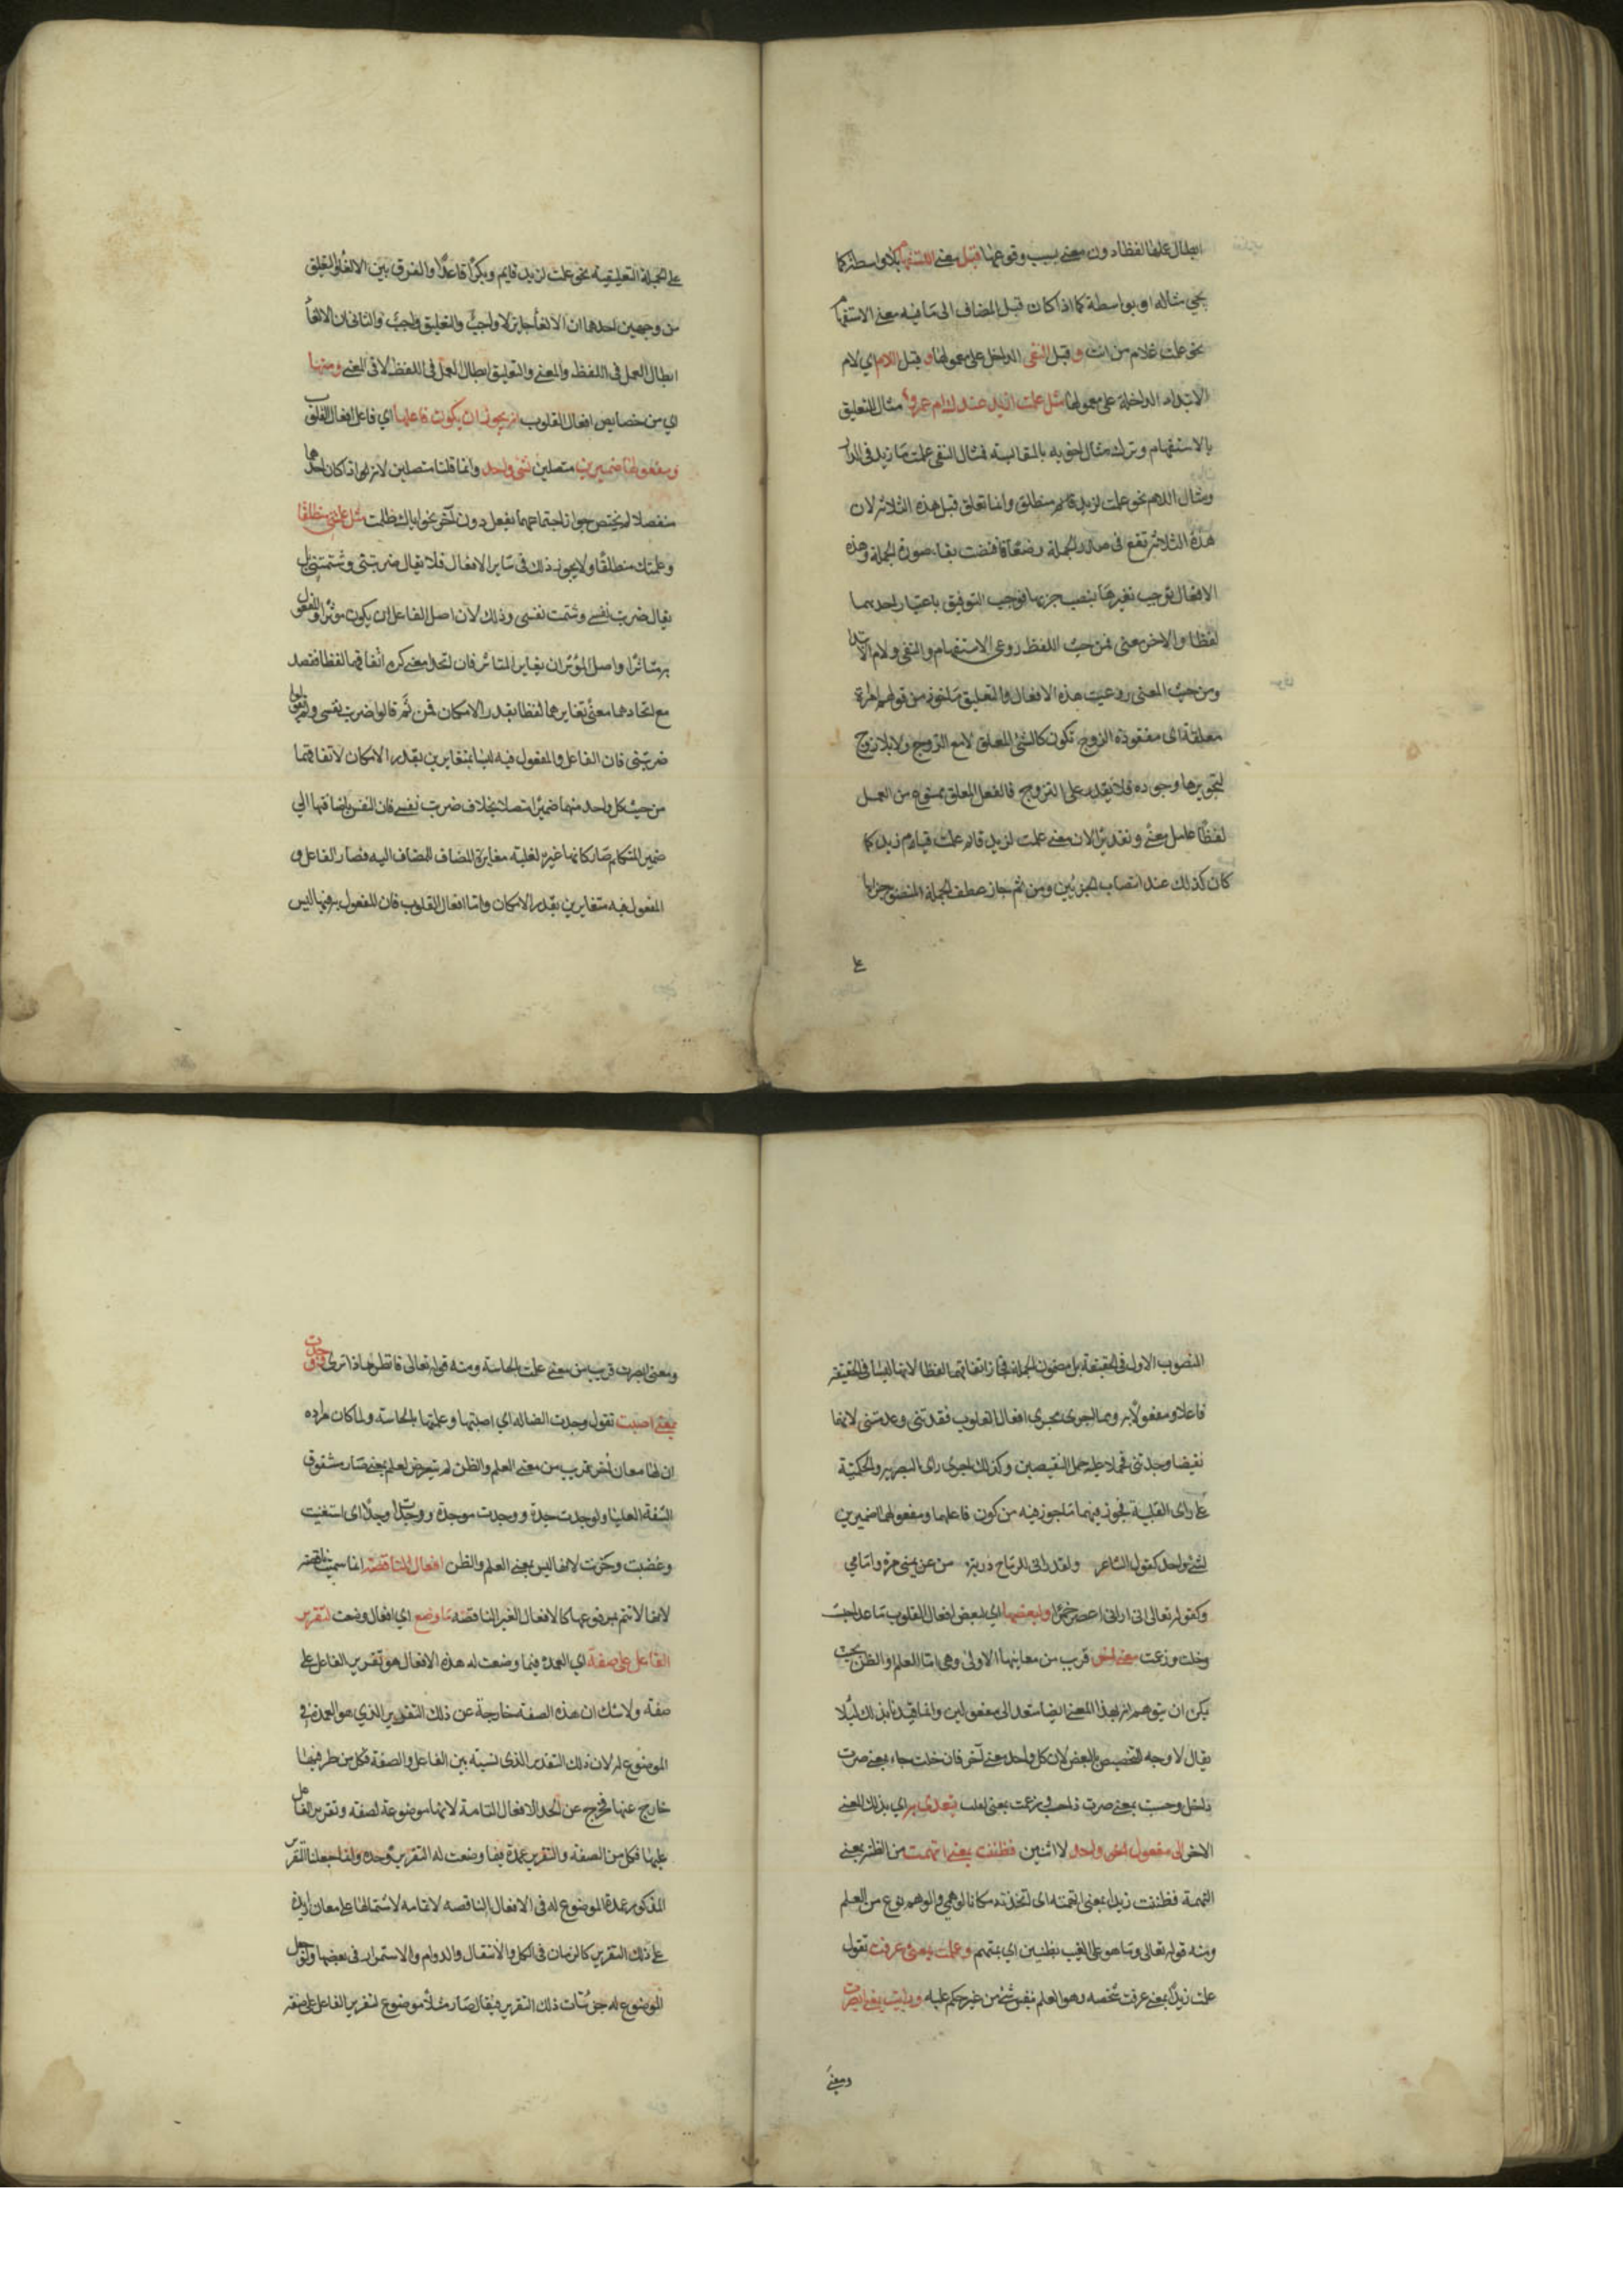 ابطال عملها لفظا دون معنى بسبب وقوعها قبل معنى الاستفهام بلا واسطة كما
يجي مثاله او بواسطة كما اذا كان قبل المضاف الى ما فيه معنى الاستفهام
نحو علمت غلام من انت و قبل النفي الداخل على معمولها و قبل اللام اي لام
الابتداء الداخلة على معمولها مثل علمت ازيد عندك ام عمرو مثال للتعليق
بالاستفهام وترك مثال اخويه بالمقايسة فمثال النفي علمت ما زيد في الدار
ومثال اللام نحو علمت لزيد منطلق وانما تعلق قبل هذه الثلاثة لان
هذه الثلاثة تقع في صدر الجملة وضعا فاقتضت بقاء صورة الجملة وهذه
الافعال توجب تغيرها بنصب جزءيها فوجب التوفيق باعتبار احدهما
لفظا والاخر معنى فمن حيث اللفظ روعي الاستفهام والنفي ولام الابتدا
ومن حيث المعنى روعيت هذه الافعال والتعليق مأخوذ من قولهم امرأة
معلقة اي مفقودة الزوج تكون كالشئ المعلق لا مع الزوج ولا بلا زوج
لتجويزها وجوده فلا تقدر على التزوج فالفعل المعلق ممنوع من العمل
لفظا عامل معنى وتقديرا لان معنى علمت لزيد قائم علمت قيام زيد كما
كان كذلك عند انتصاب الجزئين ومن ثم جاز عطف الجملة المنصوب جزءاها
على
على الجملة التعليقية نحو علمت لزيد قايم وبكرا قاعدا والفرق بين الالغاء والتعليق
من وجهين احدهما ان الالغا جايز لا واجب والتعليق واجب والثاني ان الالغا
ابطال العمل في اللفظ والمعنى والتعليق ابطال العمل في اللفظ لا في المعنى ومنها
اي من خصايص افعال القلوب انه يجوز ان يكون فاعلها اي فاعل افعال القلوب
ومفعولها ضميرين متصلين لشئ واحد وانما قلنا متصلين لانه اذا كان احدهما
منفصلا لم يختص جواز اجتماعهما بفعل دون آخر نحو اياك ظلمت مثل علمتني منطلقا
وعلمتك منطلقا ولا يجوز ذلك في ساير الافعال فلا يقال ضربتني وشتمتني بل
يقال ضربت نفسي وشتمت نفسي وذلك لان اصل الفاعل ان يكون موثرا والمفعول
به متأثرا واصل المؤثر ان يغاير المتاثر فان اتحدا معنى كره اتفاقهما لفظا فقصد
مع اتحادهما معنى تغايرهما لفظا بقدر الامكان فمن ثم قالوا ضربت نفسي ولم يقولوا
ضربتني فان الفاعل والمفعول فيه ليسا بمتغايرين بقدر الامكان لاتفاقهما
من حيث كل واحد منهما ضميرا متصلا بخلاف ضربت نفسي فان النفس باضافتها الى
ضمير المتكلم صار كانها غيره لغلبة مغايرة المضاف للمضاف اليه فصار الفاعل و
المفعول فيه متغايرين بقدر الامكان واما افعال القلوب فان المفعول به فيها ليس
المنصوب الاول في الحقيقة بل مضمون الجملة فجاز اتفاقهما لفظا لانهما ليسا في الحقيقة
فاعلا ومفعولا به ومما اجرى مجرى افعال القلوب فقدتني وعدمتني لانهما
نقيضا وجدتني فحملا عليه حمل النقيضين وكذلك اجرى راى البصرية والحلمية
على راى القلبية فجوز فيهما ما جوز فيه من كون فاعلهما ومفعولهما ضميرين
لشئ واحد كقول الشاعر ولقد اراني للرماح دريئة من عن يميني مرة وامامي
وكقوله تعالى اني اراني اعصر خمرا ولبعضها اي لبعض افعال القلوب ما عدا حسبت
وخلت وزعمت معنى اخر قريب من معانيها الاولى وهي اما العلم والظن بحيث
يمكن ان يتوهم انه بهذا المعنى ايضا متعد الى مفعولين وانما قيدنا بذلك لئلا
يقال لا وجه لتخصيص البعض لان لكل واحد معنى آخر فان خلت جاء بمعنى صرت
ذا خال وحسبت بمعنى صرت ذا حسب وزعمت بمعنى كفلت يتعدى به اي بذلك المعنى
الاخر الى مفعول واحد لا اثنين فظننت بمعنى اتهمت من الظنة بمعنى
التهمة فظننت زيدا بمعنى اتهمته اي اتخذته مكانا لوهمي والوهم نوع من العلم
ومنه قوله تعالى وما هو على الغيب بظنين اي بمتهم وعلمت بمعنى عرفت تقول
علمت زيدا بمعنى عرفت شخصه وهو العلم بنفس شئ من غير حكم عليه ورايت بمعنى ابصرت
ومعنى
ومعنى ابصرت قريب من معنى علمت بالحاسة ومنه قوله تعالى فانظر ماذا ترى ووجدت
بمعنى اصبت تقول وجدت الضالة اي اصبتها وعلمتها بالحاسة ولما كان مراده
ان لها معان اخر قريب من معنى العلم والظن لم يتعرض لعلم بمعنى صار مشقوق
الشفة العليا ولوجدت جدة ووجدت موجدة ووجدت وجدا اي استغنيت
وغضبت وحزنت لانها ليس بمعنى العلم والظن افعال الناقصة انما سميت ناقصة
لانها لا تتم بمرفوعها كالافعال الغير الناقصة ما وضع اي افعال وضعت لتقرير
الفاعل على صفة اي العمدة فيما وضعت له هذه الافعال هو تقرير الفاعل على
صفة ولا شك ان هذه الصفة خارجة عن ذلك التقرير الذي هو العمدة في
الموضوع له لان ذلك التقدير الذي نسبة بين الفاعل والصفة فكل من طرفيها
خارج عنها فخرج عن الحد الافعال التامة لانها موضوعة لصفة وتقرير الفاعل
عليها فكل من الصفة والتقرير عمدة فيما وضعت له التقرير وحده وانما جعلنا التقرير
المذكور عمدة الموضوع له في الافعال الناقصة لا تمامه لاشتمالها على معان زايدة
على ذلك التقرير كالزمان في الكل والانتقال والدوام والاستمرار في بعضها ولو جعل
الموضوع له جزئيات ذلك التقرير فيقال صار مثلا موضوع لتقرير الفاعل على صفة